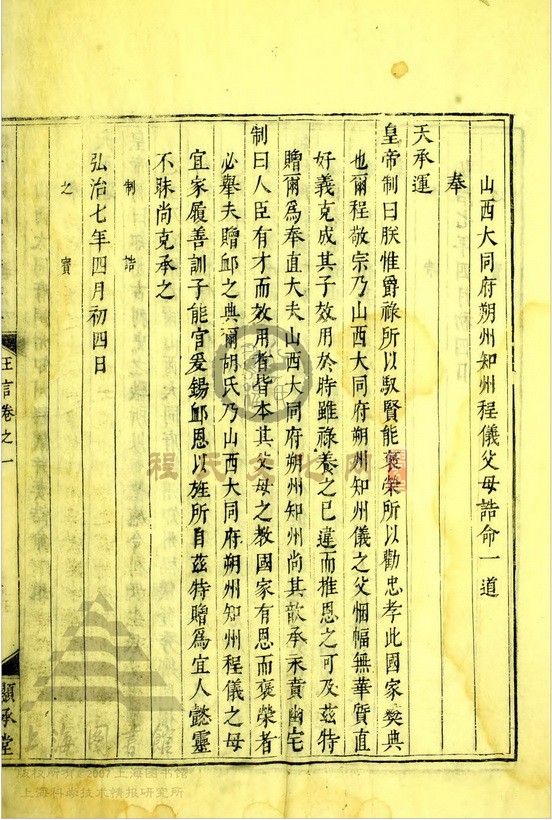 山西大同府朔州知州程儀父母誥命一道
奉
天承運
皇帝制曰朕惟爵祿所以馭賢能褒榮所以勸忠孝此國家奬典
也爾程敬宗乃山西大同府朔州知州儀之父悃幅無華質直
好義克成其子效用於時雖祿養之已違而推恩之可及茲特
贈爾爲奉直大夫山西大同府朔州知州尚其歆承永賁幽宅
制曰人臣有才而效用者皆本其父母之教國家有恩而褒榮者
必舉夫贈䘏之典爾胡氏乃山西大同府朔州知州程儀之母
宜家履善訓子能官爰錫䘏恩以旌所自茲特贈爲宜人懿靈
不昧尚克承之
弘治七年四月初四日
制誥
之寶
王言卷之一
顯承堂
程氏文化网
上海圖書館
版权所有©2007上海图书馆
上海科学技术情报研究所